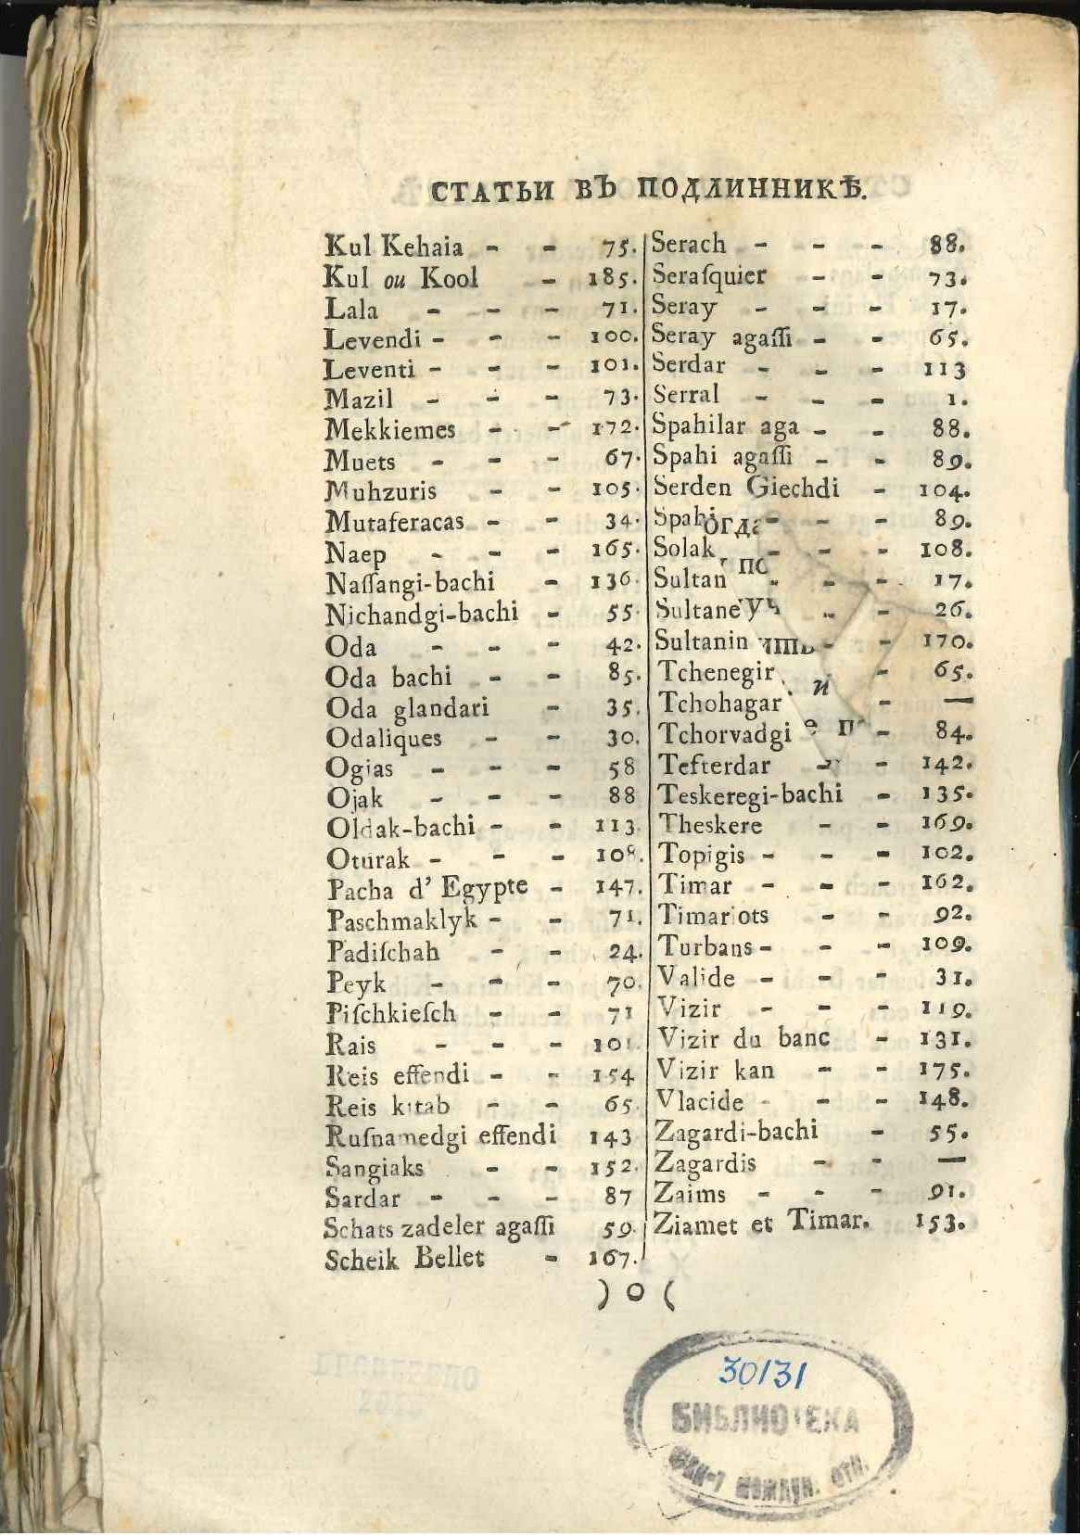 СТАТЬИ ВЪ ПОДЛИННИКѢ.
Kul Kehaia - - 75.
Kul ou Kool - 185.
Lala - - - 71.
Levendi - - - 100.
Leventi - - - 101.
Mazil - - - 73.
Mekkiemes - - 172.
Muets - - - 67.
Muhzuris - - 105.
Mutaferacas - - 34.
Naep - - - 165.
Naſſangi-bachi - 136.
Nichandgi-bachi - 55.
Oda - - - 42.
Oda bachi - - 85.
Oda glandari - 35.
Odaliques - - 30.
Ogias - - - 58
Ojak - - - 88
Oldak-bachi - - 113
Oturak - - - 108.
Pacha d' Egypte - 147.
Paschmaklyk - - 71.
Padiſchah - - 24.
Peyk - - - 70.
Piſchkieſch - - 71
Rais - - -
Reis effendi - - 154
Reis kitab - - 65.
Ruſnamedgi effendi 143
Sangiaks - - 152.
Sardar - - - 87
Schats zadeler agaſſi 59.
Scheik Bellet - 167.
Serach - - - 88.
Seraſquier - - 73.
Seray - - - 17.
Seray agaſſi - - 65.
Serdar - - - 113
Serral - - - 1.
Spahilar aga - - 88.
Spahi agaſſi - - 89.
Serden Giechdi - 104.
Spahi - - - 89.
Solak - - - 108.
Sultan - - - 17.
Sultane - - 26.
Sultanin - - 170.
Tchenegir - 65.
Tchohagar - —
Tchorvadgi - 84.
Tefterdar - - 142.
Teskeregi-bachi - 135.
Theskere - - 169.
Topigis - - - 102.
Timar - - - 162.
Timariots - - 92.
Turbans - - - 109.
Valide - - - 31.
Vizir - - - 119.
Vizir du banc - 131.
Vizir kan - - 175.
Vlacide - - - 148.
Zagardi-bachi - 55.
Zagardis - - —
Zaims - - - 91.
Ziamet et Timar. 153.
) o (
30131
БИБЛИОТЕКА
МЕЖДУН. ОТН.